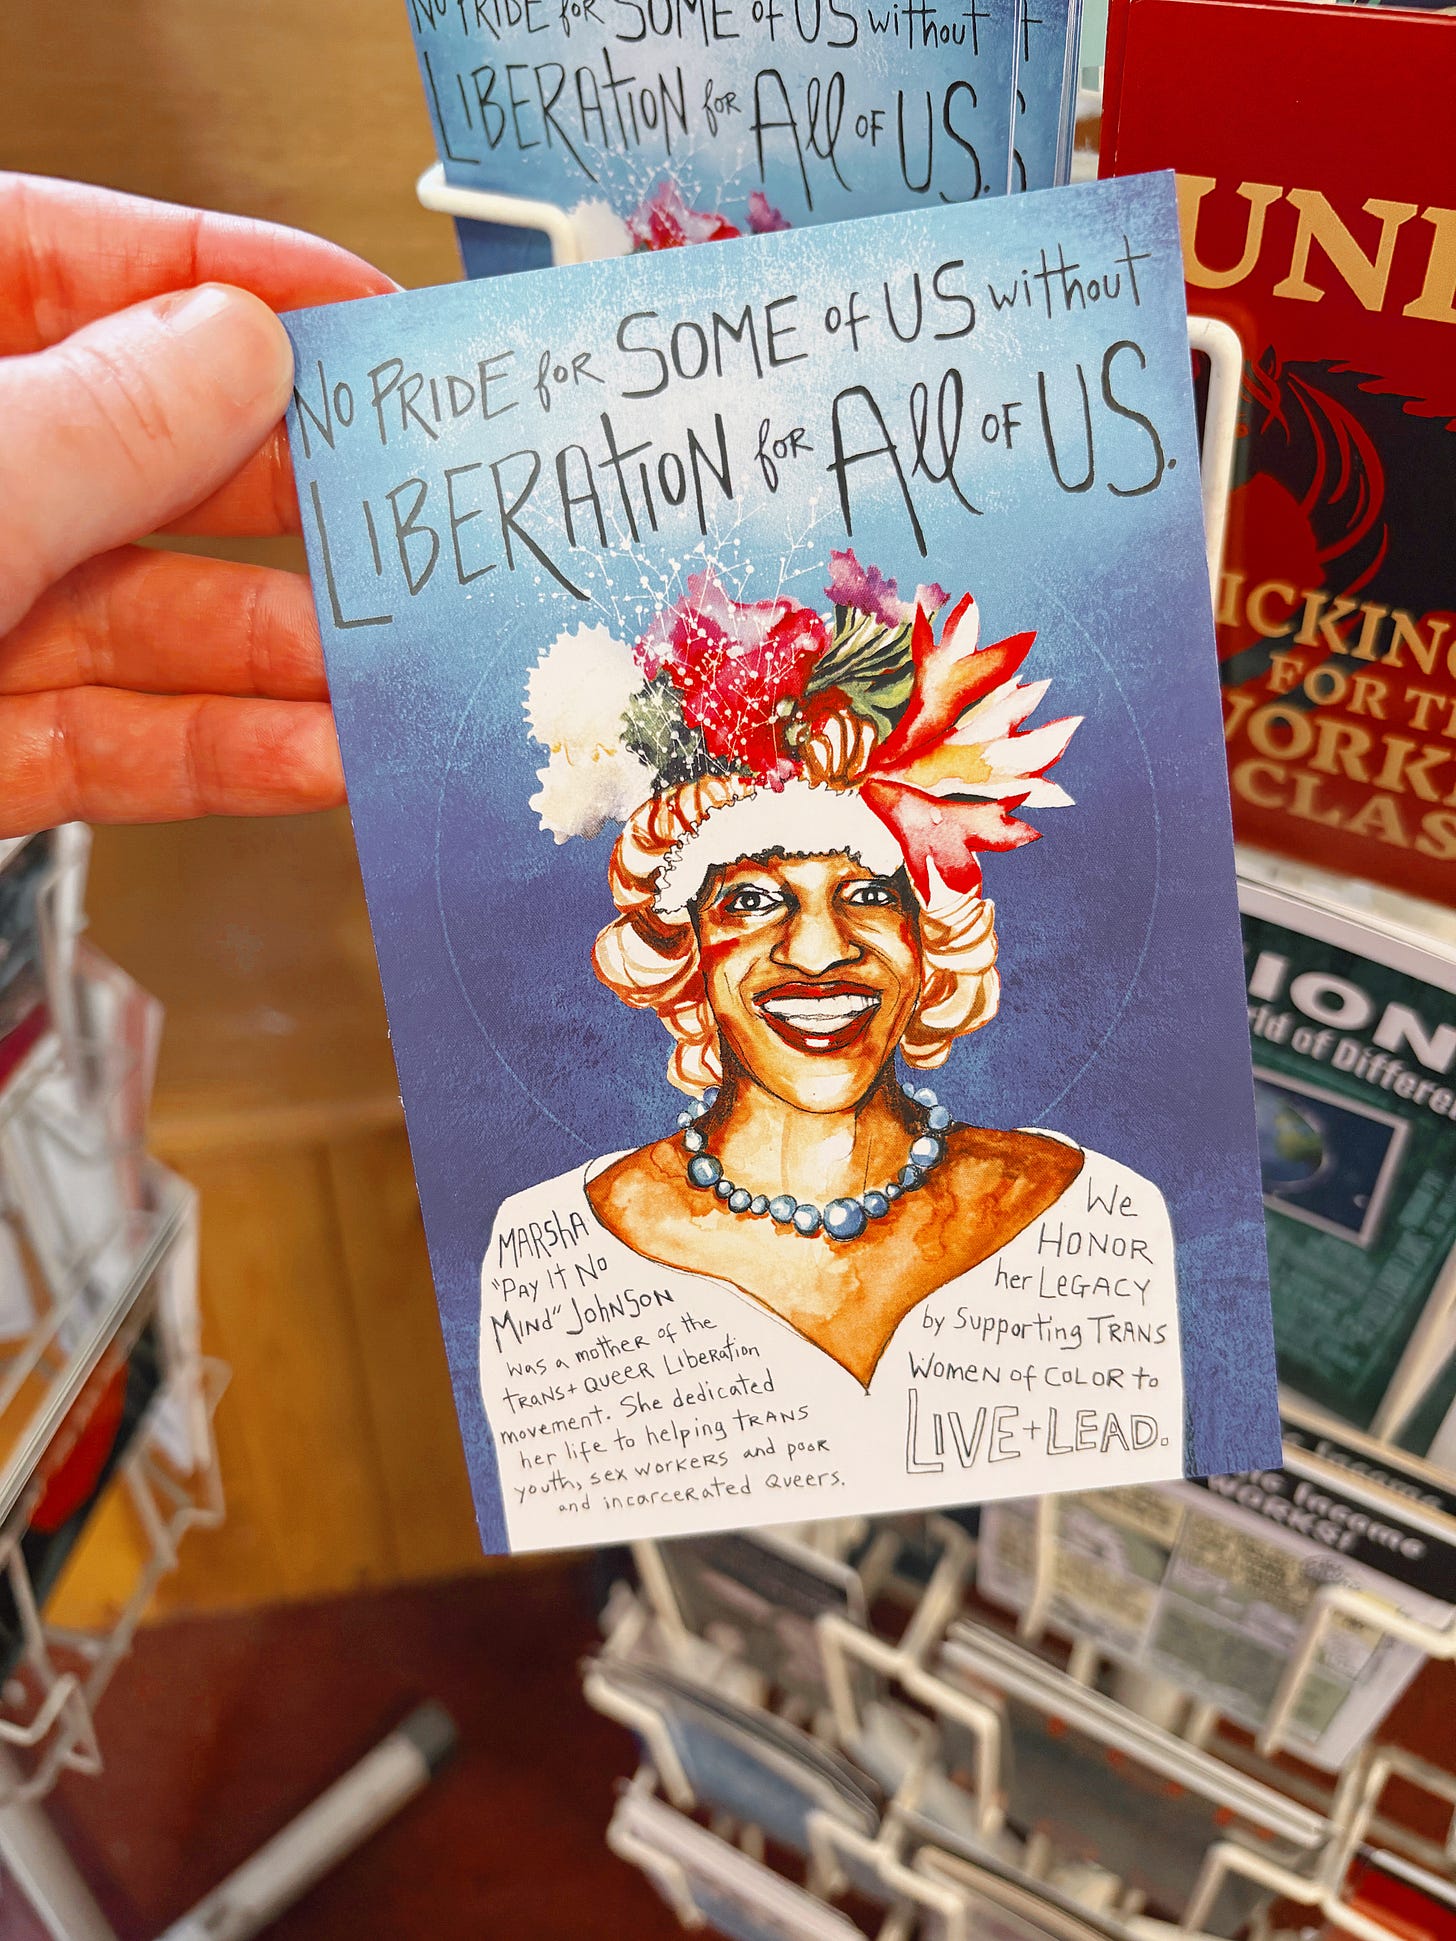 No PRIDE for SOME of US without
LIBERATION for All OF US.
No PRIDE for SOME of US without
LIBERATION for All OF US.
MARSHA
"PAY It No
MIND" JOHNSON
was a mother of the
trans+ Queer Liberation
movement. She dedicated
her life to helping trans
youth, sex workers and poor
and incarcerated Queers.
We
HONOR
her LEGACY
by Supporting TRANS
Women of Color to
LIVE + LEAD.
UNI
ICKING
FOR T
WORK
CLAS
ION
ld of Differe
WORKS!